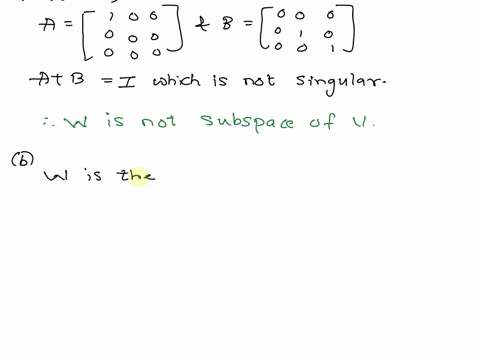 A = [ 1 0 0 & B = [ 0 0 0
0 0 0 0 1 0
0 0 0 ] 0 0 1 ]
A+B = I which is not singular.
∴ W is not subspace of V.
(b)
W is the